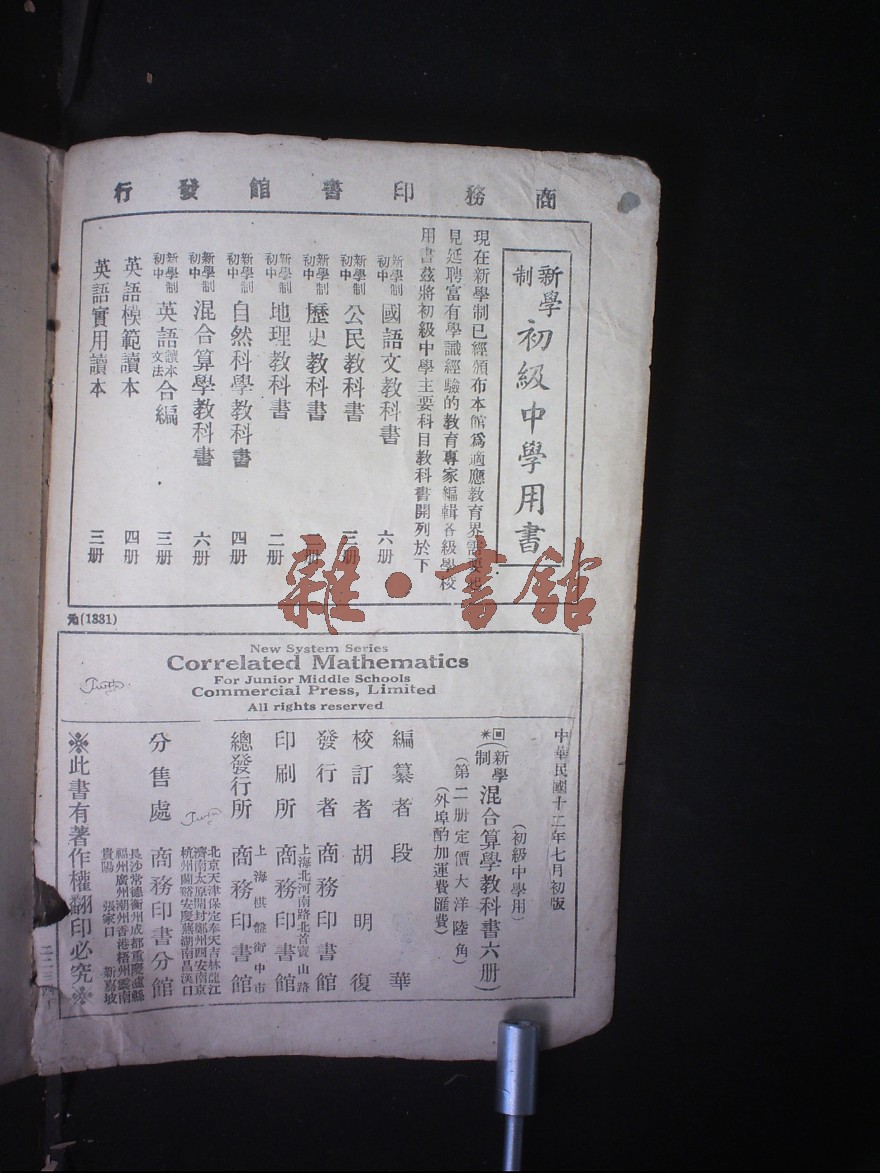 商務印書館發行
新學制 初級中學用書
現在新學制已經頒布本館爲適應教育界需要起
見延聘富有學識經驗的教育專家編輯各級學校
用書茲將初級中學主要科目教科書開列於下
新學制初中 國語文教科書 六册
新學制初中 公民教科書 三册
新學制初中 歷史教科書 二册
新學制初中 地理教科書 二册
新學制初中 自然科學教科書 四册
新學制初中 混合算學教科書 六册
新學制初中 英語讀本文法合編 三册
英語模範讀本 四册
英語實用讀本 三册
雜·書館
元(1331)
New System Series
Correlated Mathematics
For Junior Middle Schools
Commercial Press, Limited
All rights reserved
中華民國十二年七月初版
(初級中學用)
(新學制 混合算學教科書六册)
(第二册定價大洋陸角)
(外埠酌加運費匯費)
編纂者 段 華
校訂者 胡明復
發行者 商務印書館
上海北河南路北首寶山路
印刷所 商務印書館
上海棋盤街中市
總發行所 商務印書館
北京天津保定奉天吉林龍江
濟南太原開封鄭州西安南京
杭州蘭谿安慶蕪湖南昌漢口
分售處 商務印書分館
長沙常德衡州成都重慶瀘縣
福州廣州潮州香港梧州雲南
貴陽 張家口 新嘉坡
※此書有著作權翻印必究※